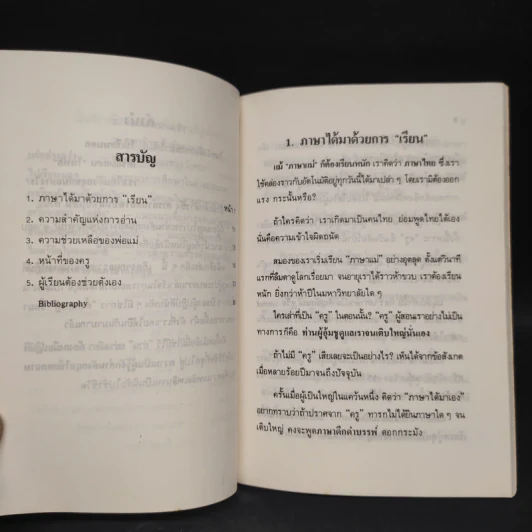 สารบัญ
หน้า
1. ภาษาได้มาด้วยการ "เรียน"
2. ความสำคัญแห่งการอ่าน
3. ความช่วยเหลือของพ่อแม่
4. หน้าที่ของครู
5. ผู้เรียนต้องช่วยตัวเอง
Bibliography
1. ภาษาได้มาด้วยการ "เรียน"
แม้ "ภาษาแม่" ก็ต้องเรียนหนัก เราคิดว่า ภาษาไทย ซึ่งเรา
ใช้คล่องราวกับอัตโนมัติอยู่ทุกวันนี้ได้มาเปล่า ๆ โดยเรามิต้องออก
แรง กระนั้นหรือ?
ถ้าใครคิดว่า เราเกิดมาเป็นคนไทย ย่อมพูดไทยได้เอง
นั่นคือความเข้าใจผิดถนัด
สมองของเราเริ่มเรียน "ภาษาแม่" อย่างอุตลุด ตั้งแต่วินาที
แรกที่ลืมตาดูโลกเรื่อยมา จนอายุเราได้ราวห้าขวบ เราต้องเรียน
หนัก ยิ่งกว่าห้าปีในมหาวิทยาลัยใด ๆ
ใครเล่าที่เป็น "ครู" ในตอนนั้น? "ครู" ผู้สอนเราอย่างไม่เป็น
ทางการก็คือ ท่านผู้อุ้มชูดูแลเราจนเติบใหญ่นั่นเอง
ถ้าไม่มี "ครู" เสียเลยจะเป็นอย่างไร? เห็นได้จากข้อสังเกต
เมื่อหลายร้อยปีมาจนถึงปัจจุบัน
ครั้นเมื่อผู้เป็นใหญ่ในแคว้นหนึ่ง คิดว่า "ภาษาได้มาเอง"
อยากทราบว่าถ้าปราศจาก "ครู" ทารกไม่ได้ยินภาษาใด ๆ จน
เติบใหญ่ คงจะพูดภาษาดึกดำบรรพ์ ดอกกระมัง